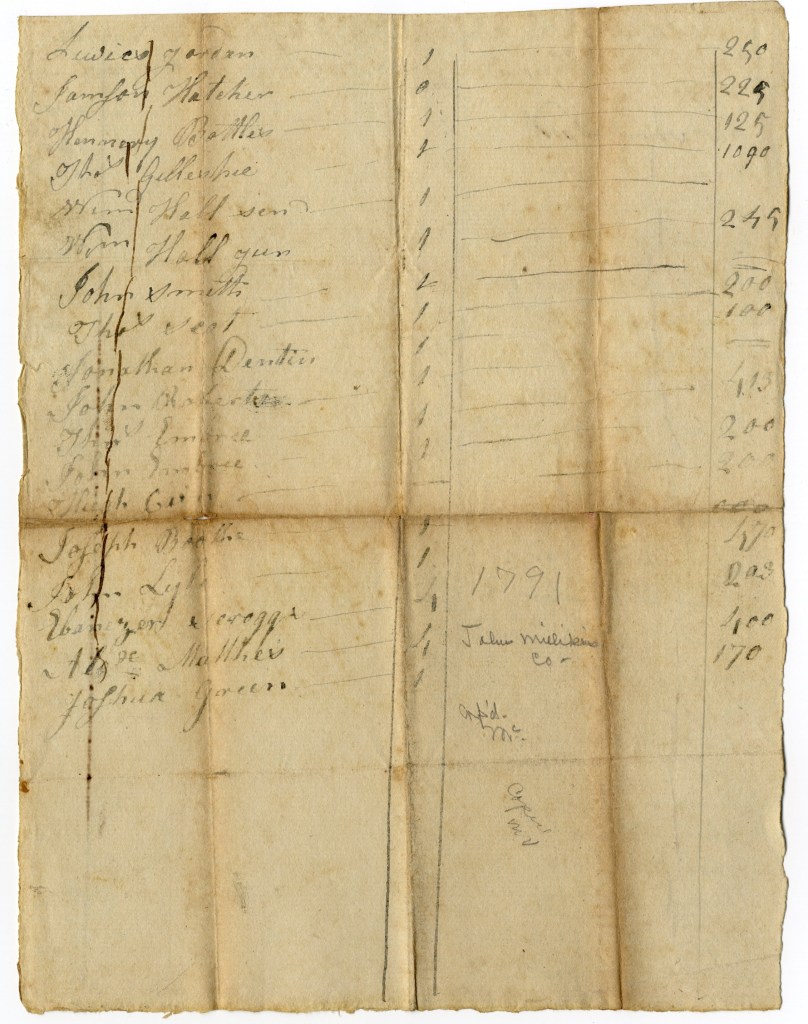 Lewies Jordan 1 250
Samson Hatcher 0 225
Hennary Battles 1 125
Thos Gillespie 1 1090
Wim Hall sen 1
Wim Hall jun 1 245
John Smith 2 200
Thos Scot 1 100
Jonathan Denten 1
John 1 413
Thos Embree 1 200
John Embree 1 200
Hugh
Joseph Booth 1 470
John Lyle 1 203
Ebanezer Scroggs 4 400
Alexde Mathes 4 170
Joshua Green 1
1791
John Millikins
Co-
Cop'd.
Mc.
Copied